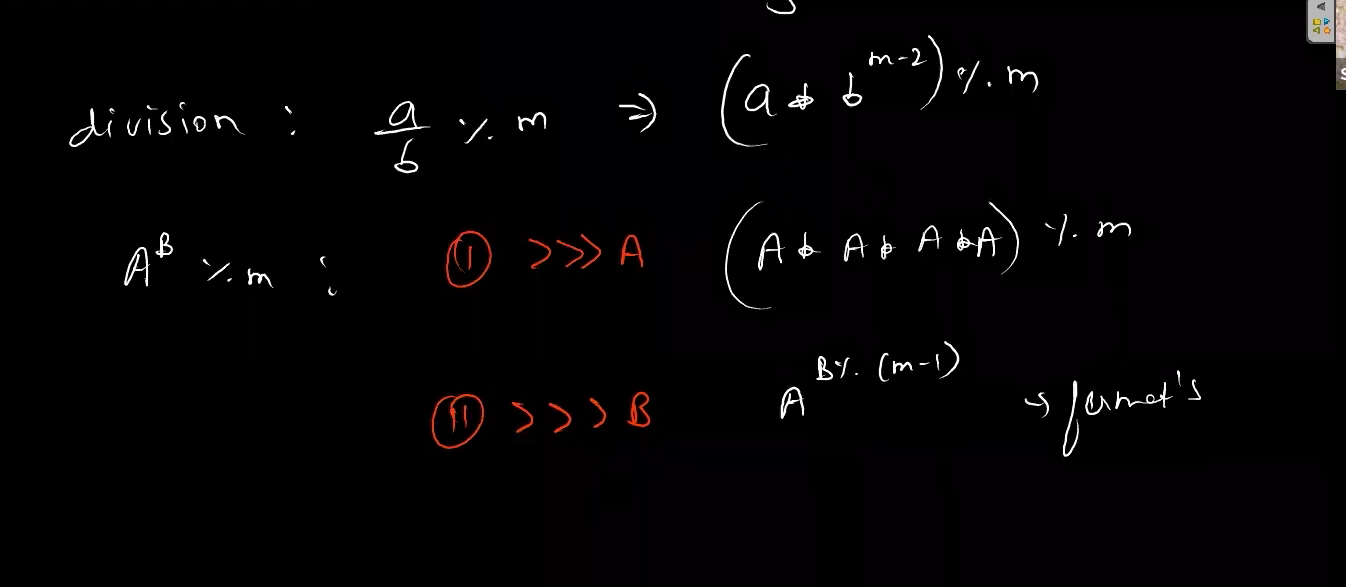 division : a/b % m ⇒ (a * b^(m-2)) % m
A^B % m : (I) >>> A (A * A * A * A) % m
(II) >>> B A^(B % (m-1)) → fermat's